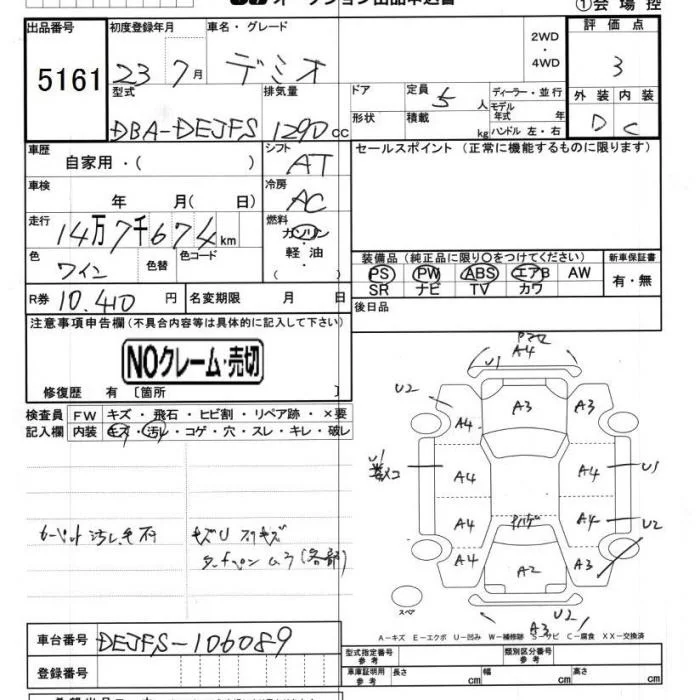 オークション出品申込書 ①会場控
出品番号 初度登録年月 車名・グレード 2WD・4WD 評価点
5161 23 7月 デミオ 3
型式 排気量 ドア 定員 5人 ディーラー・並行 外装 内装
DBA-DEJFS 1290cc 形状 積載 kg モデル年式 年 ハンドル 左・右 D C
車歴 シフト セールスポイント (正常に機能するものに限ります)
自家用・( ) AT
車検 年 月( 日) 冷房 AC
走行 14万7千674km 燃料 ガソリン・軽油 ( )
色 ワイン 色替 色コード
装備品 (純正品に限り○をつけてください) 新車保証書
PS PW ABS エアB AW 有・無
SR ナビ TV カワ
R券 10,410円 名変期限 月 日 後日品
注意事項申告欄 (不具合内容等は具体的に記入して下さい)
NOクレーム・売切
修復歴 有 〔箇所 〕
検査員記入欄 FW キズ・飛石・ヒビ割・リペア跡・×要
内装 キズ・汚れ・コゲ・穴・スレ・キレ・破レ
カーペット汚れ毛付 キズU
(各部)
A4
U1
U2 A3 A3
A4
U1 A4 A4 U1
A4 A4 U2
A4 A2 A3
スペア
U2
A3
A-キズ E-エクボ U-凹み W-補修跡 S-サビ C-腐食 XX-交換済
車台番号 DEJFS-106089
型式指定番号 参考 類別区分番号 参考
登録番号 車庫証明用 参考 長さ cm 幅 cm 高さ cm